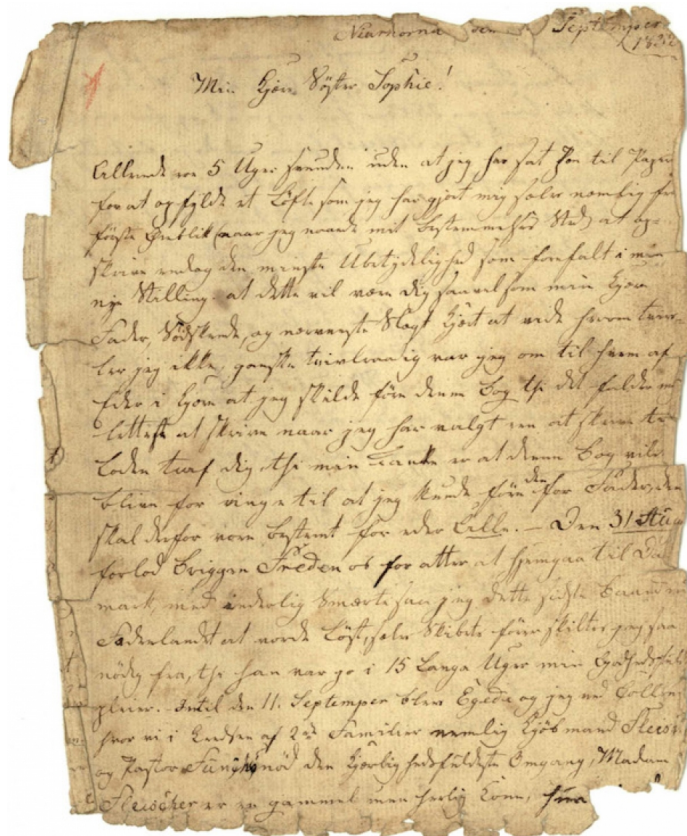 Niakornak den Septemper
1822
Min Kjære Söster Sophie!
Allerede ere 5 Uger svunden uden at jeg har sat Pen til Papir
for at opfylde et Löfte som jeg har gjort mig selv nemlig fra
förste Öieblik (naar jeg naaede mit bestemmelses Sted) at op-
skrive endog den mindste Ubetydelighed som forefalt i min
nye Stilling. at dette vil være dig saavel som min Kjære
Fader, Södskende, og nærmeste Slægt kjært at vide herom tviv-
ler jeg ikke, ganske tvivlraadig var jeg om til hvem af
Eder i Kjære at jeg skulde före denne Bog thi det falder
lettest at skrive naar jeg har valgt en at skrive til
Loden traf dig thi min Tanke er at denne Bog vil
blive for ringe til at jeg kunde före den for Fader, den
skal derfor være bestemt for eder Alle. – Den 31 Aug
forlod Briggen Freden os for atter at hjemgaa til Dan
mark, med inderlig Smerte saa jeg dette sidste Baand
Föderlandet at vorde Löst, selv Skibets förer skiltes jeg saa
nödig fra, thi han var jo i 15 Lange Uger min
Indtil den 11. Septemper blev Egede og jeg ved Collon
hvor vi i Kredsen af 2de Familier nemlig Kjöbmand Fleisc
og Pastor Funchs nöd den kjærlighedsfuldeste Omgang, Madam
Fleischer er en gammel men herlig Kone,